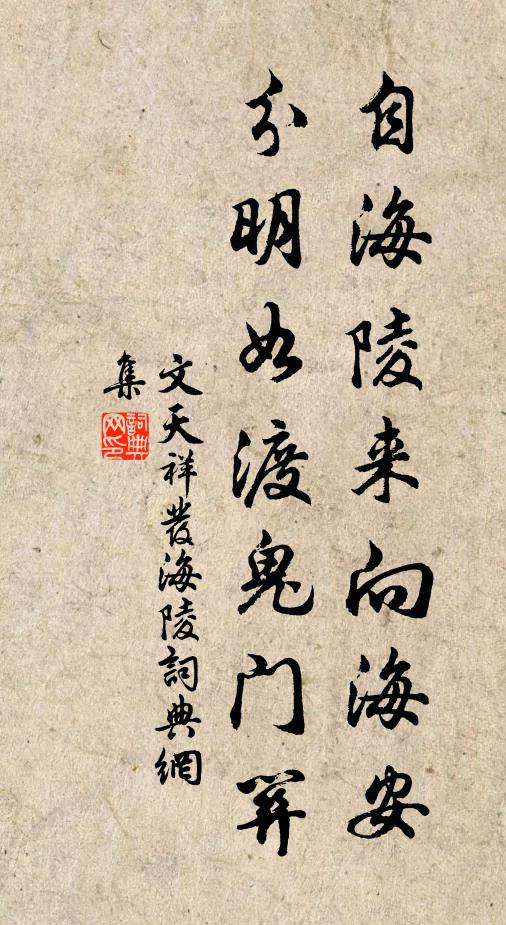 自海陵来向海安
分明如渡鬼门關
文天祥發海陵詞典網
集
詞典
网印